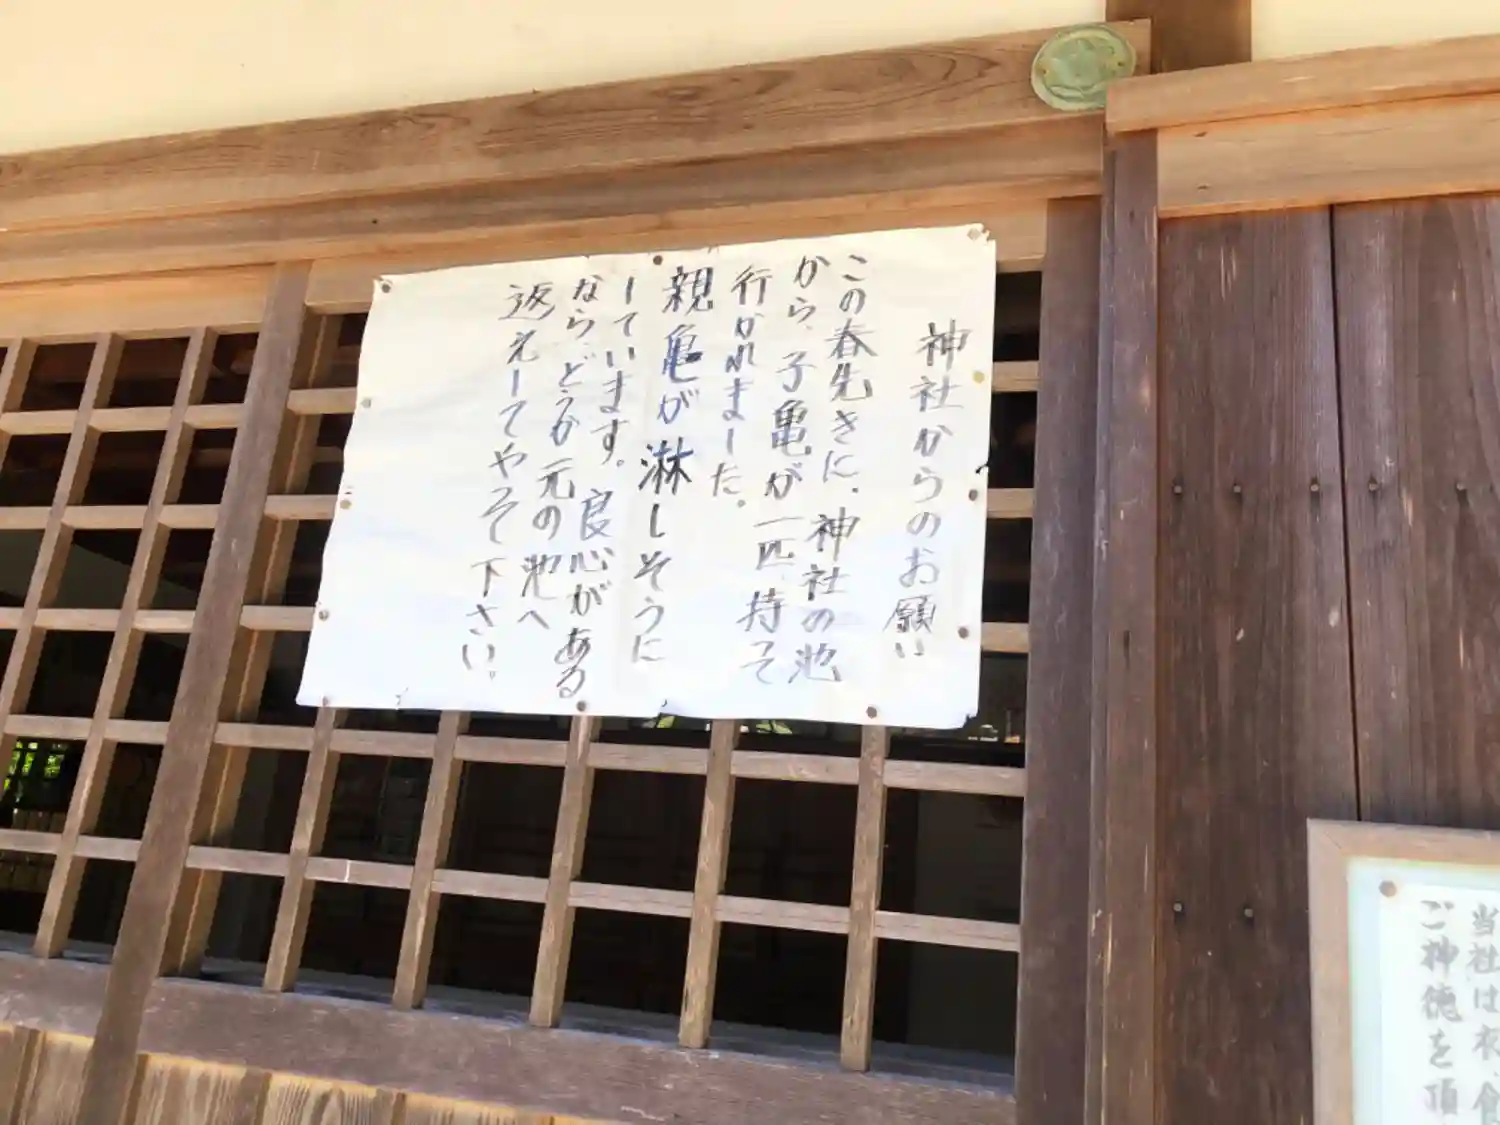 神社からのお願い
この春先きに、神社の池
から、子亀が一匹、持って
行かれました。
親亀が淋しそうに
しています。良心がある
なら、どうか元の池へ
返えしてやって下さい。
当社は衣、食
ご神徳を頂